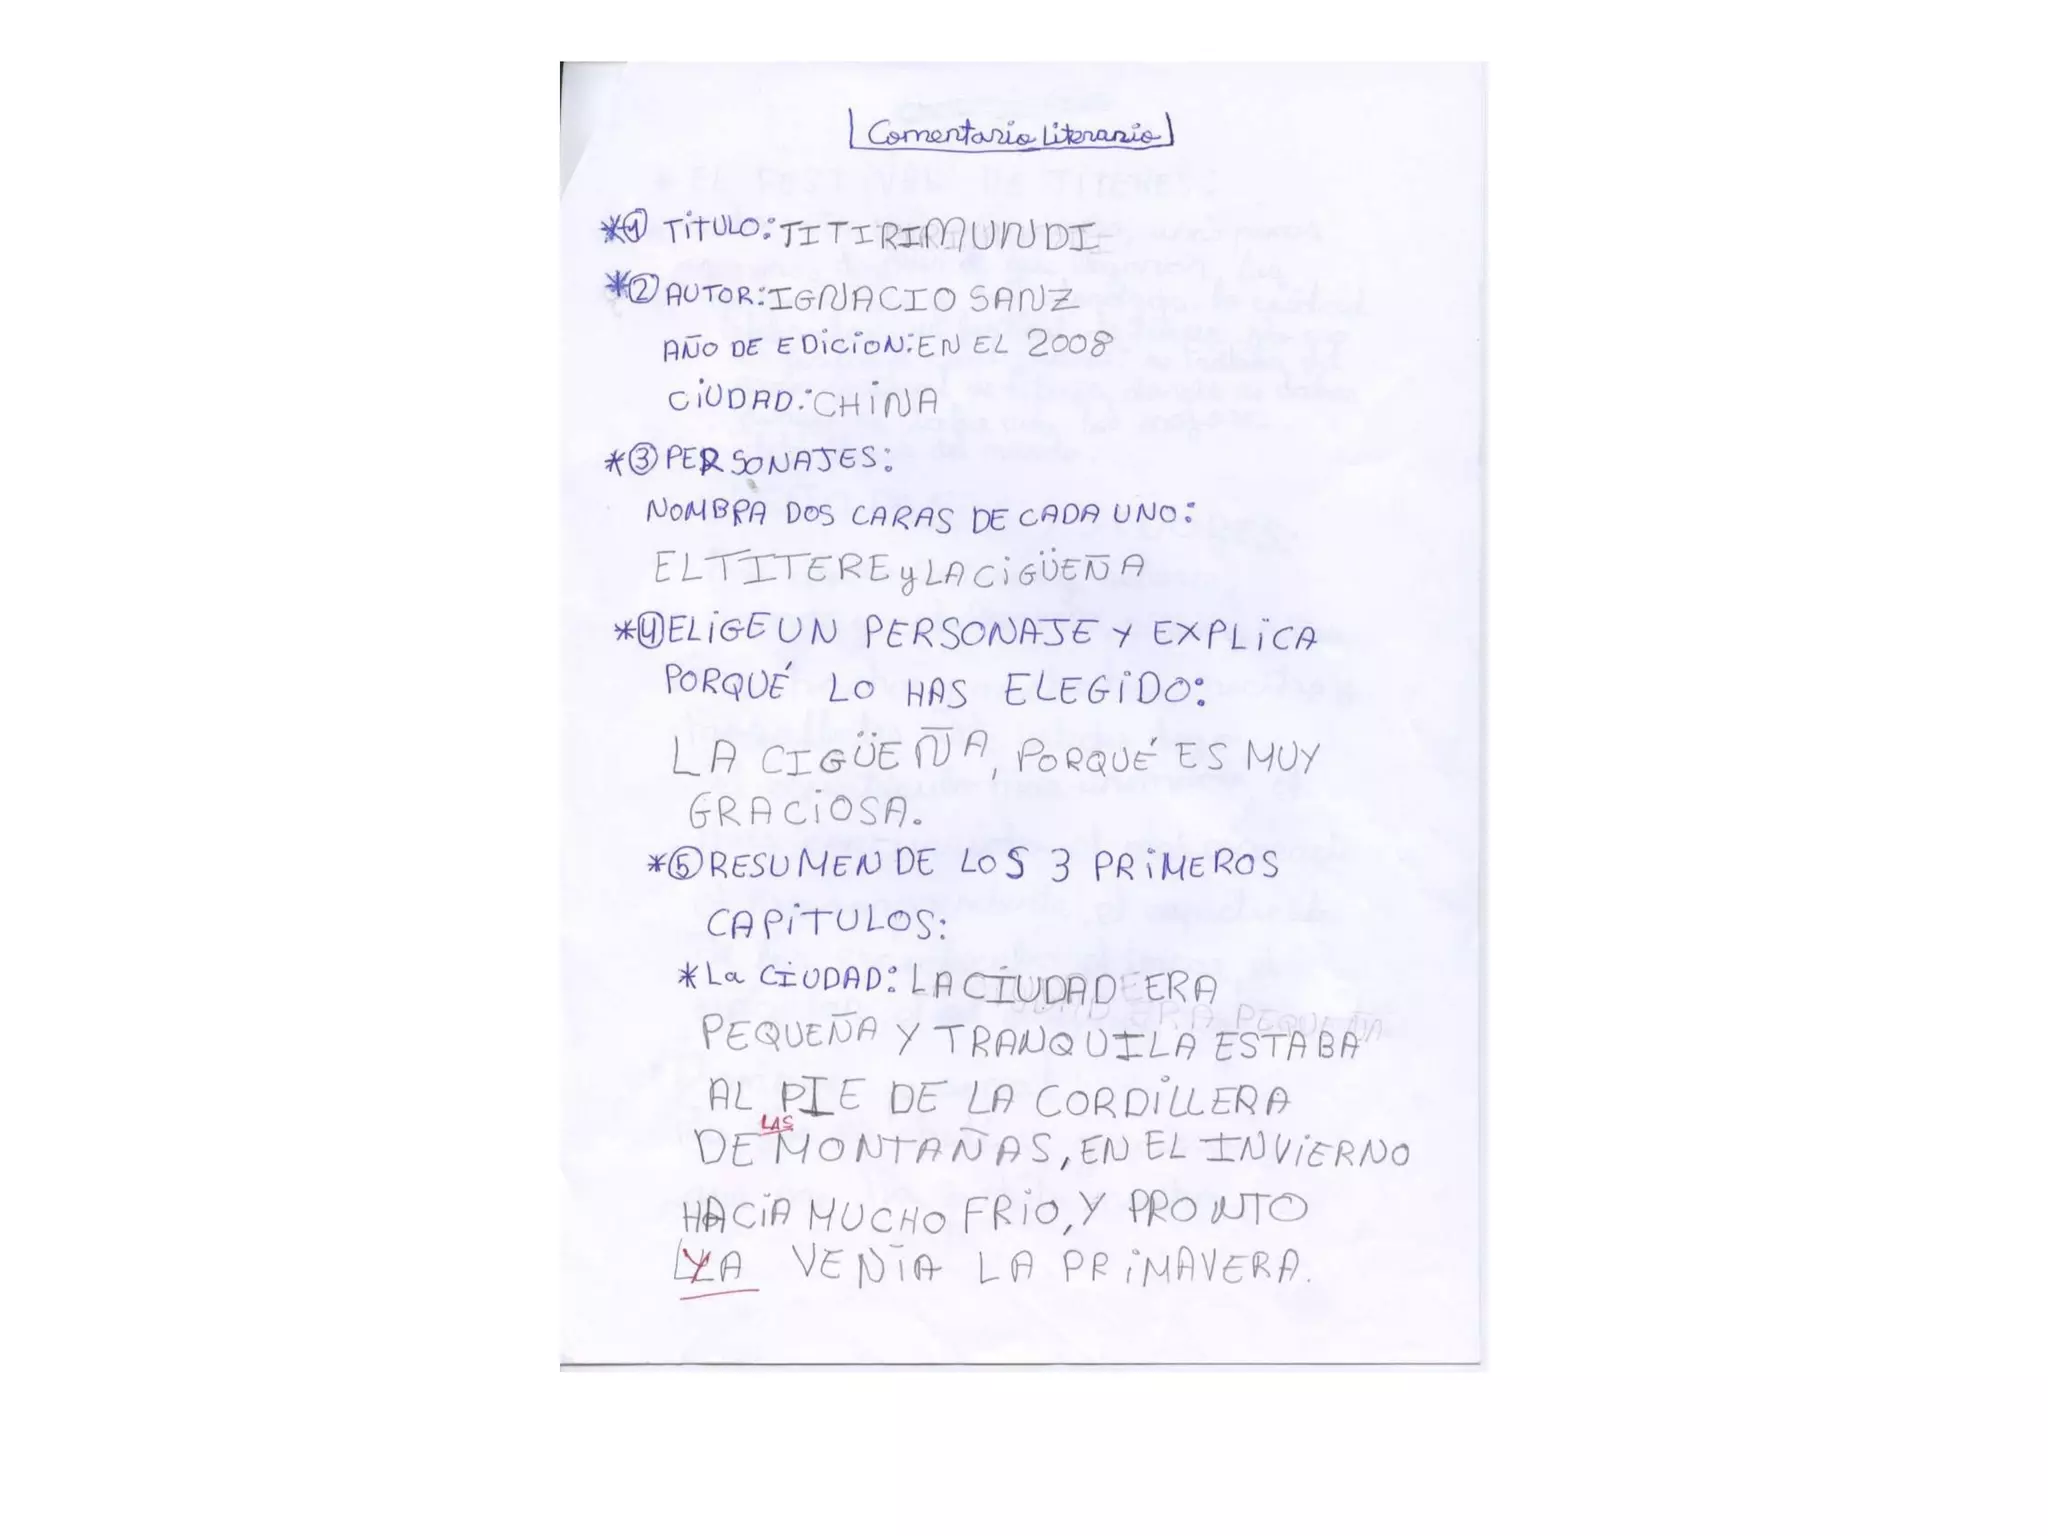 Comentario Literario
*① TiTULO: TITIRIMUNDI
*② AUTOR: IGNACIO SANZ
AÑO DE EDiCiON: EN EL 2008
CiUDAD: CHiNA
*③ PERSONAJES:
NOMBRA DOS CARAS DE CADA UNO:
EL TITERE y LA CiGÜEÑA
*④ ELiGE UN PERSONAJE Y EXPLiCA
PORQUÉ LO HAS ELEGiDO:
LA CIGÜEÑA, PORQUÉ ES MUY
GRACiOSA.
*⑤ RESUMEN DE LOS 3 PRiMEROS
CAPiTULOS:
* La CIUDAD: LA CIUDAD ERA
PEQUEÑA Y TRANQUILA ESTABA
AL PIE DE LA CORDiLLERA
LAS
DE MONTAÑAS, EN EL INViERNO
HACiA MUCHO FRiO, Y PRONTO
YA VENiA LA PRiMAVERA.